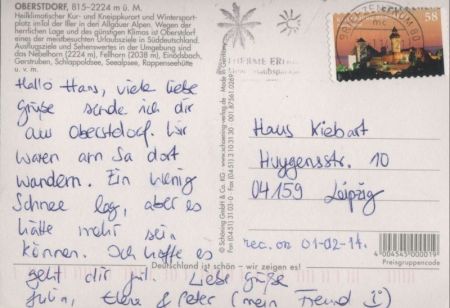 OBERSTDORF, 815–2224 m Ü. M.
Heilklimatischer Kur- und Kneippkurort und Wintersport-
platz im Tal der Iller in den Allgäuer Alpen. Wegen der
herrlichen Lage und des günstigen Klimas ist Oberstdorf
einer der meistbesuchten Urlaubsziele in Süddeutschland.
Ausflugsziele und Sehenswertes in der Umgebung sind
das Nebelhorn (2224 m), Fellhorn (2038 m), Einödsbach,
Gerstruben, Schlappoldsee, Seealpsee, Rappenseehütte
u. v. m.
Hallo Hans, viele liebe
Grüße sende ich dir
aus Oberstdorf. Wir
waren am Sa dort
wandern. Ein wenig
Schnee lag, aber es
hätte mehr sein
können. Ich hoffe es
geht dir gut. Liebe Grüße
Julia, & Peter (mein Freund :))
Deutschland ist schön – wir zeigen es!
© Schöning GmbH & Co. KG
Fax (04 51) 3 10 31 30
www.schoening-verlag.de
Made in Germany
58
Haus Kiebart
Huygensstr. 10
04159 Leipzig
rec. on 01-02-14.
4 004545 000019
Preisgruppencode